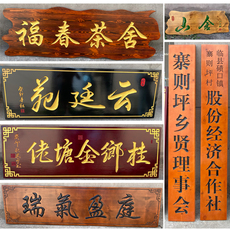 福春茶舍
云廷苑
桂鄉金塘佬
瑞氣盈庭
山舍
临县碛口镇
寨则坪村
股份经济合作社
寨则坪乡贤理事会